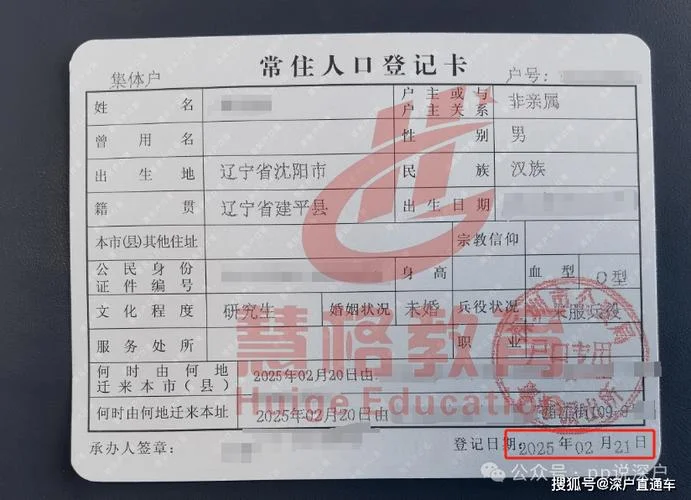 常住人口登记卡
集体户 户号:
姓名 户主或与户主关系 非亲属
曾用名 性别 男
出生地 辽宁省沈阳市 民族 汉族
籍贯 辽宁省建平县 出生日期
本市(县)其他住址 宗教信仰
公民身份证件编号 身高 血型 O型
文化程度 研究生 婚姻状况 未婚 兵役状况 未服兵役
服务处所 职业
何时由何地迁来本市(县) 2025年02月20日由
何时由何地迁来本址 2025年02月20日由
承办人签章: 登记日期:2025年02月21日
慧格教育
Huige Education
户口专用
公众号·pp说深户
搜狐号@深户直通车